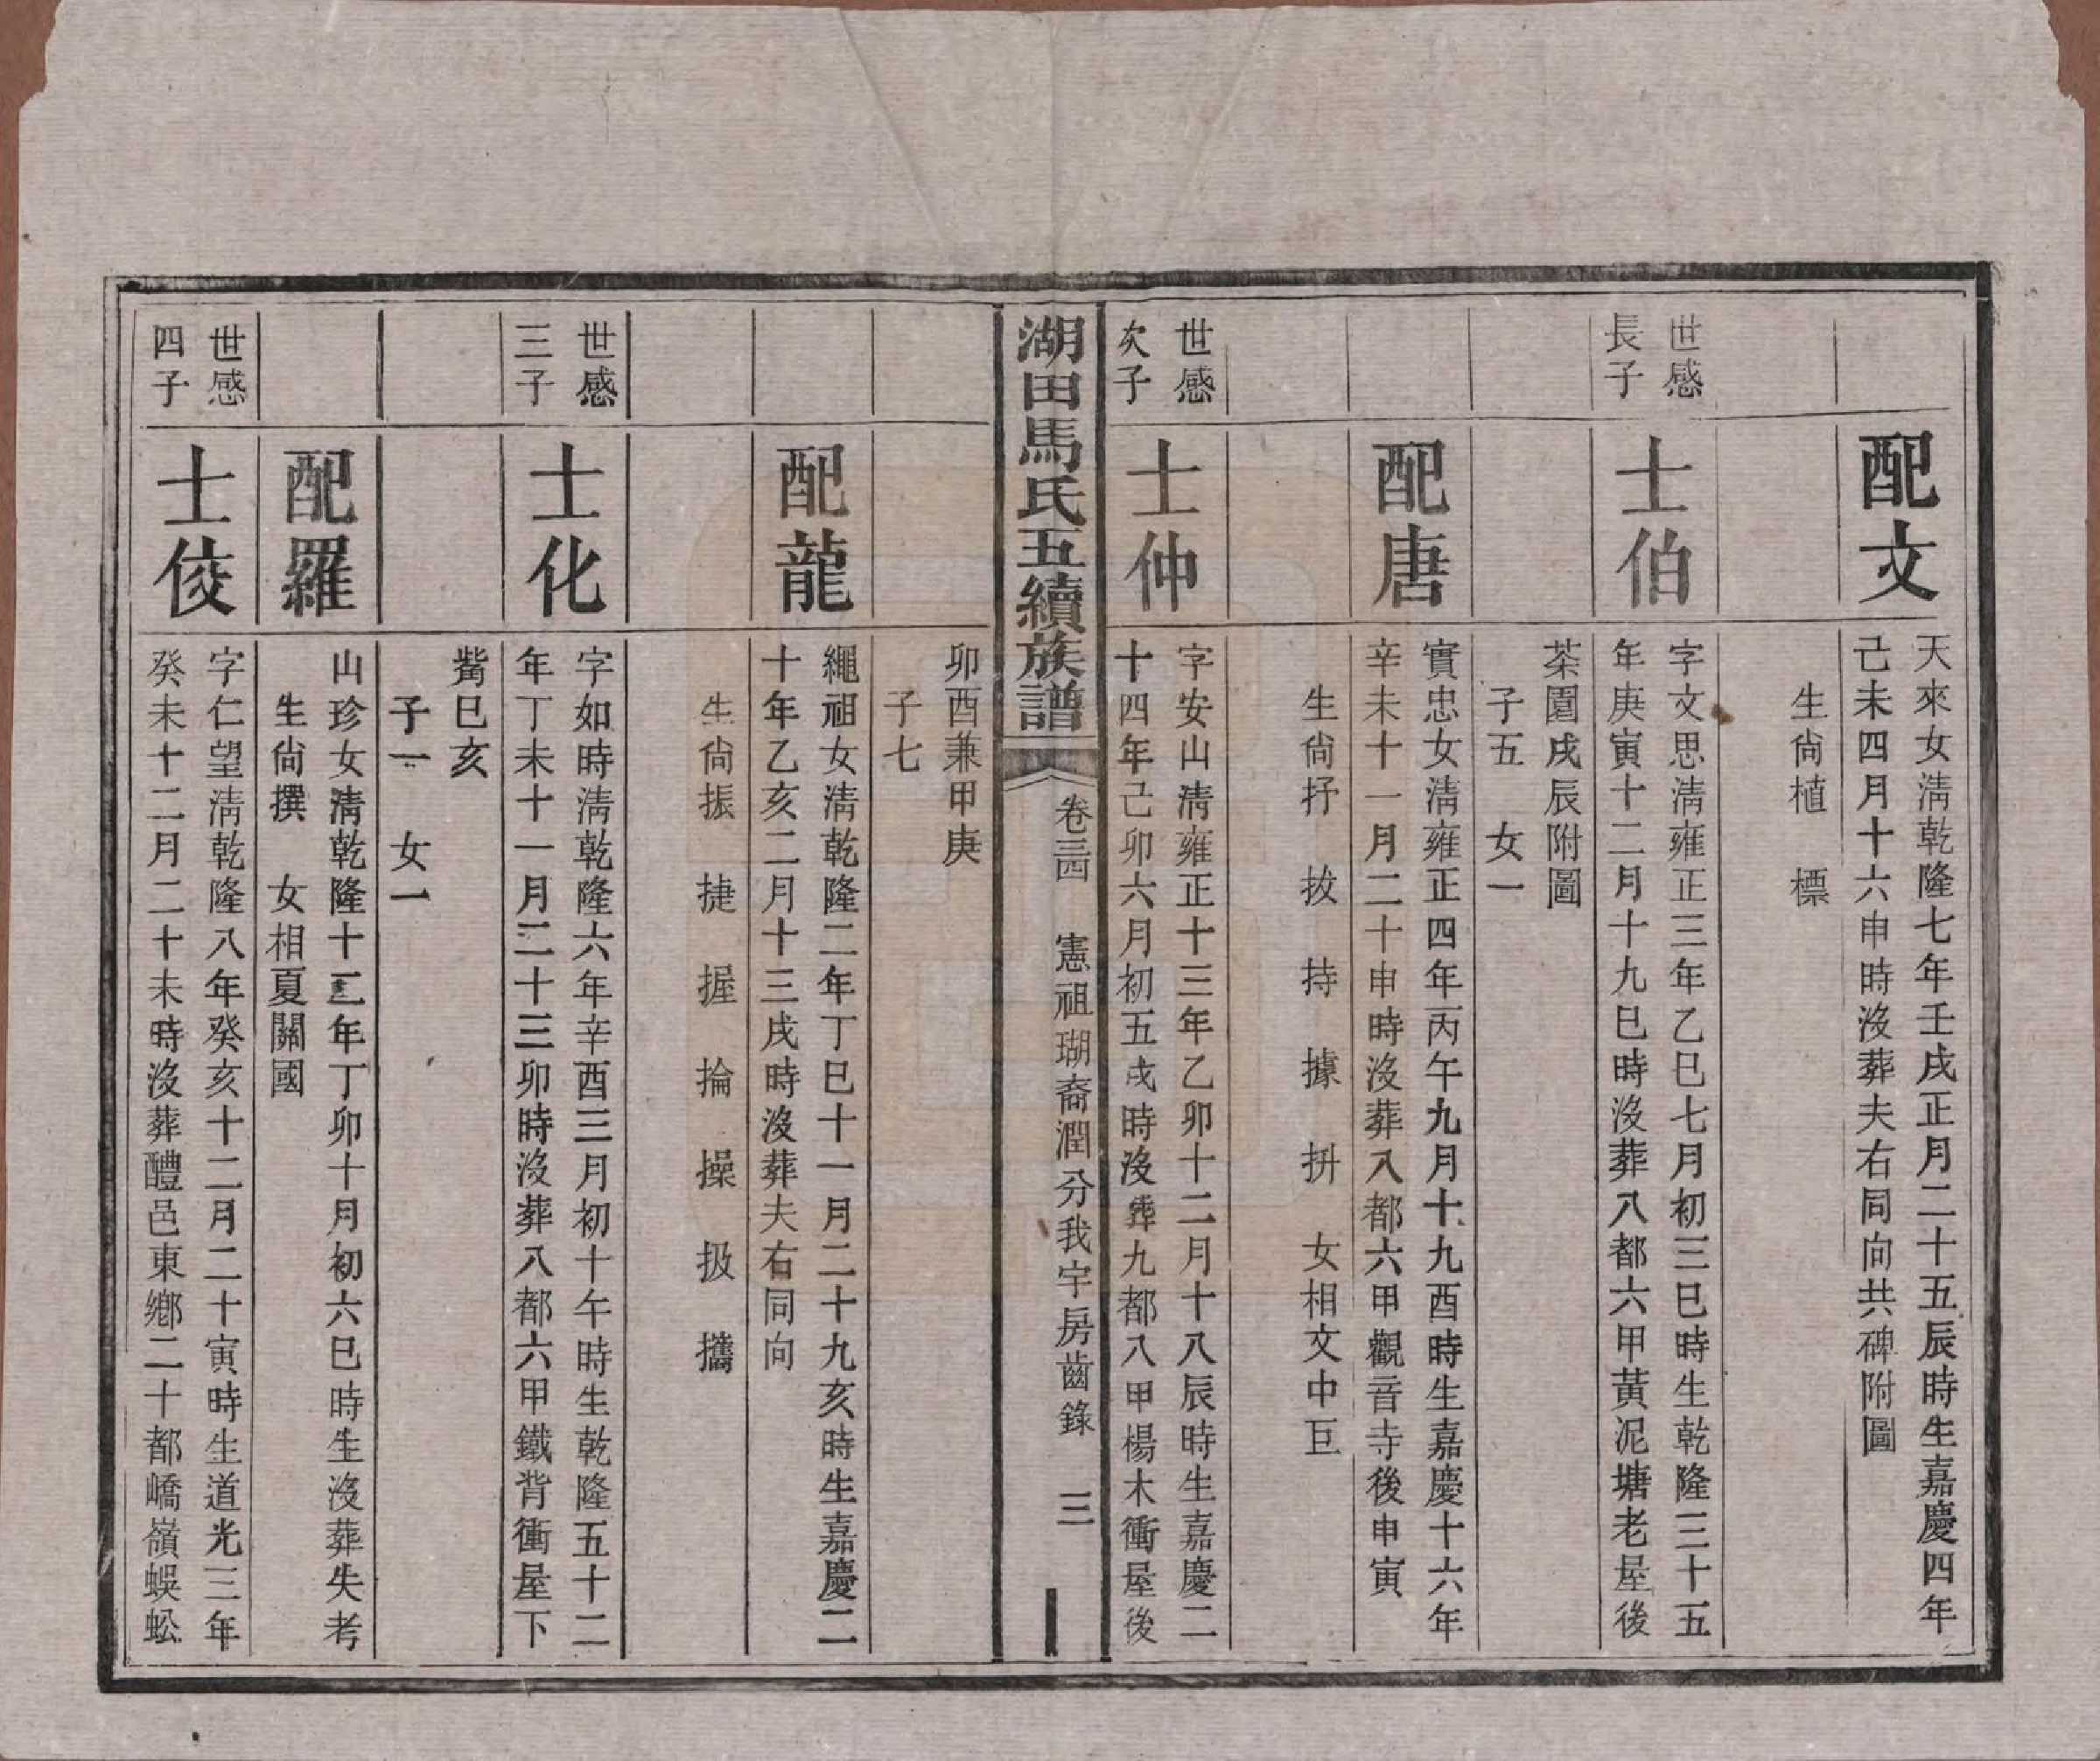 配文
天來女淸乾隆七年壬戌正月二十五辰時生嘉慶四年
己未四月十六申時沒葬夫右同向共碑附圖
生尙植　標
世感
長子
士伯
字文思淸雍正三年乙巳七月初三巳時生乾隆三十五
年庚寅十二月十九巳時沒葬八都六甲黃泥塘老屋後
茶園戌辰附圖
子五　女一
配唐
實忠女淸雍正四年丙午九月十九酉時生嘉慶十六年
辛未十一月二十申時沒葬入都六甲觀音寺後申寅
生尙抒　拔　持　據　拚　女相文中巨
世感
次子
士仲
字安山淸雍正十三年乙卯十二月十八辰時生嘉慶二
十四年己卯六月初五戌時沒葬九都八甲楊木衝屋後
湖田馬氏五續族譜
卷三四　憲祖瑚裔潤分我宇房齒錄　三
卯酉兼甲庚
子七
配龍
繩祖女淸乾隆二年丁巳十一月二十九亥時生嘉慶二
十年乙亥二月十三戌時沒葬夫右同向
生尙振　捷　握　掄　操　扱　攜
世感
三子
士化
字如時淸乾隆六年辛酉三月初十午時生乾隆五十二
年丁未十一月二十三卯時沒葬八都六甲鐵背衝屋下
觜巳亥
子一　女一
配羅
山珍女淸乾隆十二年丁卯十月初六巳時生沒葬失考
生尙撰　女相夏關國
世感
四子
士佼
字仁望淸乾隆八年癸亥十二月二十寅時生道光三年
癸未十二月二十未時沒葬醴邑東鄉二十都嶠嶺蜈蚣